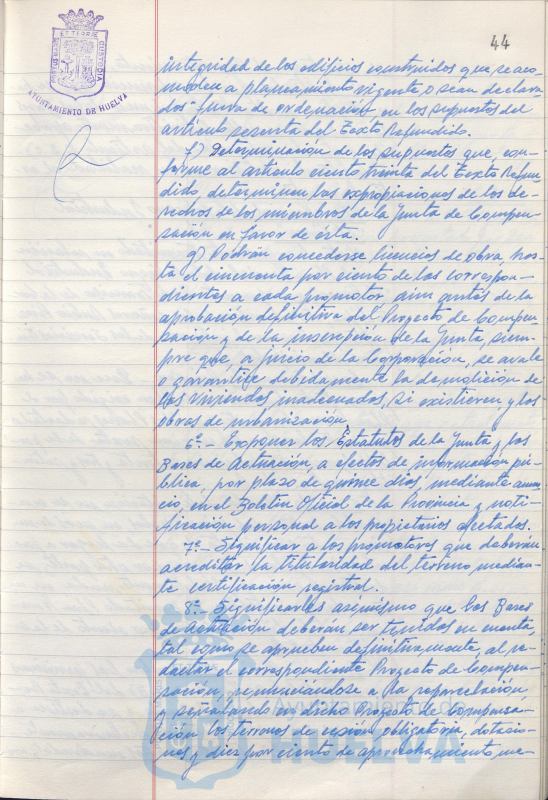 44
AYUNTAMIENTO DE HUELVA
integridad de los edificios construidos que se aco-
moden a planeamiento vigente o sean declara-
dos fuera de ordenación en los supuestos del
artículo sesenta del Texto Refundido.
f) Determinación de los supuestos que, con-
forme al artículo ciento treinta del Texto Refun-
dido determinen las expropiaciones de los de-
rechos de los miembros de la Junta de Compen-
sación en favor de ésta.
g) Podrán concederse licencias de obra has-
ta el cincuenta por ciento de las correspon-
dientes a cada promotor, aún antes de la
aprobación definitiva del Proyecto de Compen-
sación y de la inscripción de la Junta, siem-
pre que, a juicio de la Corporación, se avale
o garantice debidamente la demolición de
las viviendas inadecuadas, si existieren y las
obras de urbanización.
6º.- Exponer los Estatutos de la Junta y las
Bases de Actuación, a efectos de información pú-
blica, por plazo de quince días, mediante anun-
cio, en el Boletín Oficial de la Provincia y noti-
ficación personal a los propietarios afectados.
7º.- Significar a los promotores que deberán
acreditar la titularidad del terreno median-
te certificación registral.
8º.- Significarles asimismo que las Bases
de Actuación deberán ser tenidas en cuenta,
tal como se aprueben definitivamente, al re-
dactar el correspondiente Proyecto de Compen-
sación, renunciándose a la reparcelación,
y señalando en dicho Proyecto de Compensa-
ción los terrenos de cesión obligatoria, dotacio-
nes y diez por ciento de aprovechamiento me-
HUELVA